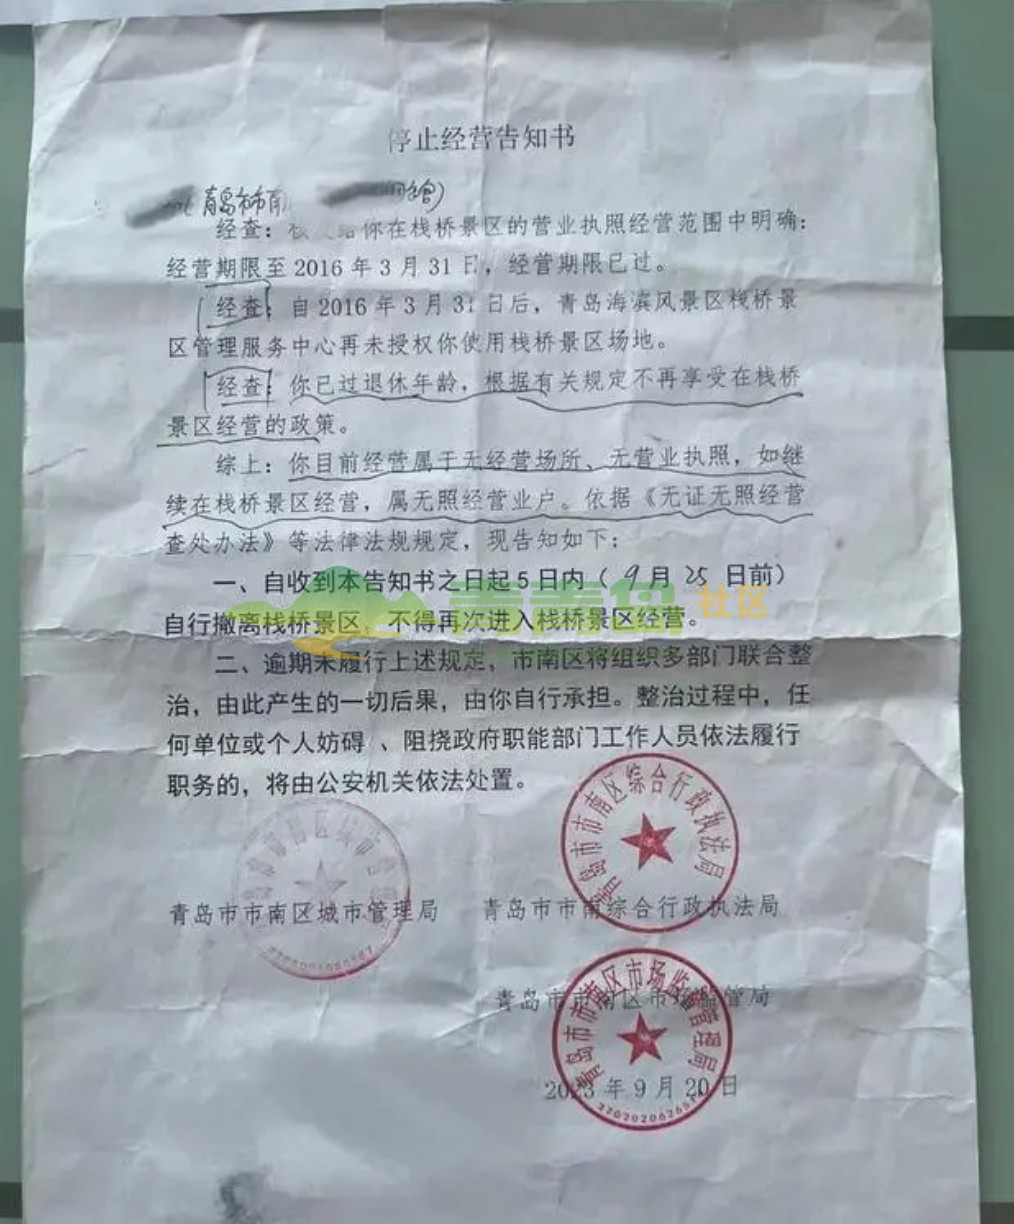 停止经营告知书
青岛市市南
经查：给你在栈桥景区的营业执照经营范围中明确：
经营期限至2016年3月31日，经营期限已过。
经查：自2016年3月31日后，青岛海滨风景区栈桥景
区管理服务中心再未授权你使用栈桥景区场地。
经查：你已过退休年龄，根据有关规定不再享受在栈桥
景区经营的政策。
综上：你目前经营属于无经营场所、无营业执照，如继
续在栈桥景区经营，属无照经营业户。依据《无证无照经营
查处办法》等法律法规规定，现告知如下：
一、自收到本告知书之日起5日内（9月25日前）
自行撤离栈桥景区，不得再次进入栈桥景区经营。
青青岛 社区
二、逾期未履行上述规定，市南区将组织多部门联合整
治，由此产生的一切后果，由你自行承担。整治过程中，任
何单位或个人妨碍、阻挠政府职能部门工作人员依法履行
职务的，将由公安机关依法处置。
青岛市市南区综合行政执法局
青岛市市南区城市管理局 青岛市市南综合行政执法局
青岛市市南区市场监督管理局
青岛市市南区市场监管局
2023年9月20日